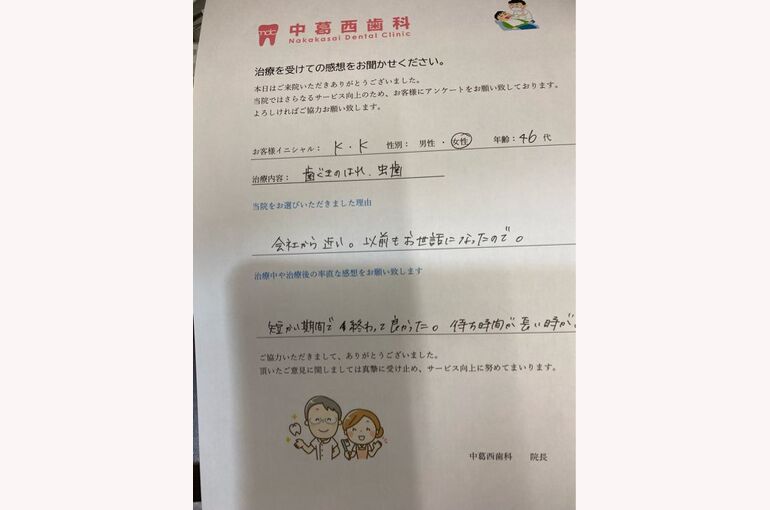 ndc
中葛西歯科
Nakakasai Dental Clinic
治療を受けての感想をお聞かせください。
本日はご来院いただきありがとうございました。
当院ではさらなるサービス向上のため、お客様にアンケートをお願い致しております。
よろしければご協力お願い致します。
お客様イニシャル： K・K 性別： 男性 ・ 女性 年齢：46 代
治療内容： 歯ぐきのはれ、虫歯
当院をお選びいただきました理由
会社から近い。以前もお世話になったので。
治療中や治療後の率直な感想をお願い致します
短かい期間で終わって良かった。待ち時間が長い時が
ご協力いただきまして、ありがとうございました。
頂いたご意見に関しましては真摯に受け止め、サービス向上に努めてまいります。
中葛西歯科 院長